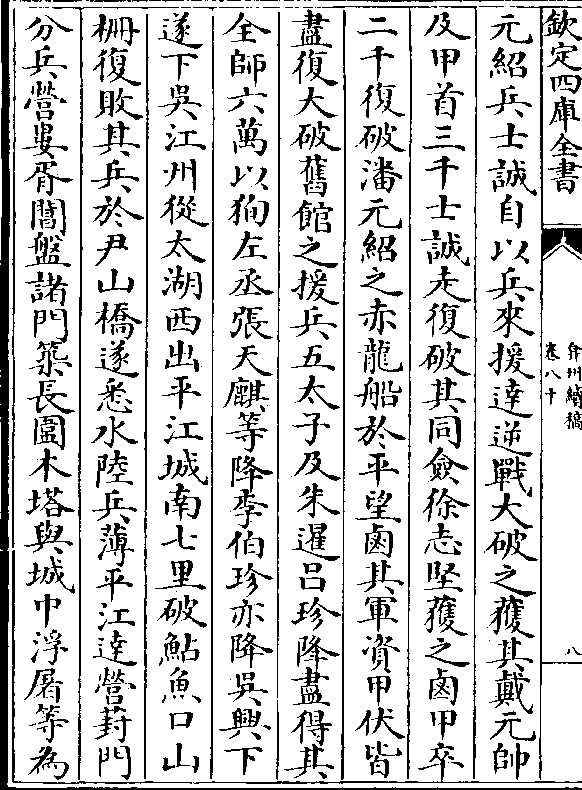 欽定四庫全書
弇州續稿
卷八十
八
元紹兵士誠自以兵來援達逆戰大破之獲其戴元帥
及甲首三千士誠走復破其同僉徐志堅獲之鹵甲卒
二千復破潘元紹之赤龍船於平望鹵其軍資甲仗皆
盡復大破舊館之援兵五太子及朱暹吕珍降盡得其
全師六萬以狥左丞張天麒等降李伯珍亦降吳興下
遂下吳江州從太湖西出平江城南七里破鮎魚口山
栅復敗其兵於尹山橋遂悉水陸兵薄平江達營葑門
分兵營婁胥閶盤諸門築長圍木塔與城中浮屠等為